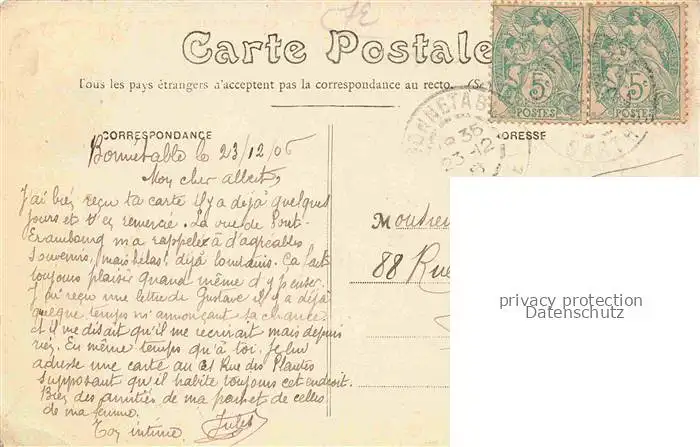 Carte Postale
Tous les pays étrangers n'acceptent pas la correspondance au recto. (Se
5c
POSTES
5c
POSTES
BONNETABLE
SARTHE
CORRESPONDANCE
ADRESSE
Bonnétable le 23/12/06
Mon cher Albert,
J'ai bien reçu ta carte il y a déjà quelques
jours et t'en remercie. La vue de Pont-
Erambourg m'a rappelée à d'agréables
souvenirs, mais hélas! déjà lointains. Ca fait
toujours plaisir quand même d'y penser.
J'ai reçu une lettre de Gustave il y a déjà
quelque temps m'annonçant sa chance
et il me disait qu'il me récrirait mais depuis
rien. En même temps qu'à toi. Je lui
adresse une carte au 21 Rue des Plantes
supposant qu'il habite toujours cet endroit.
Bien des amitiés de ma part et de celles
de ma femme.
Ton intime Jules
Monsieu
88 Rue
privacy protection
Datenschutz